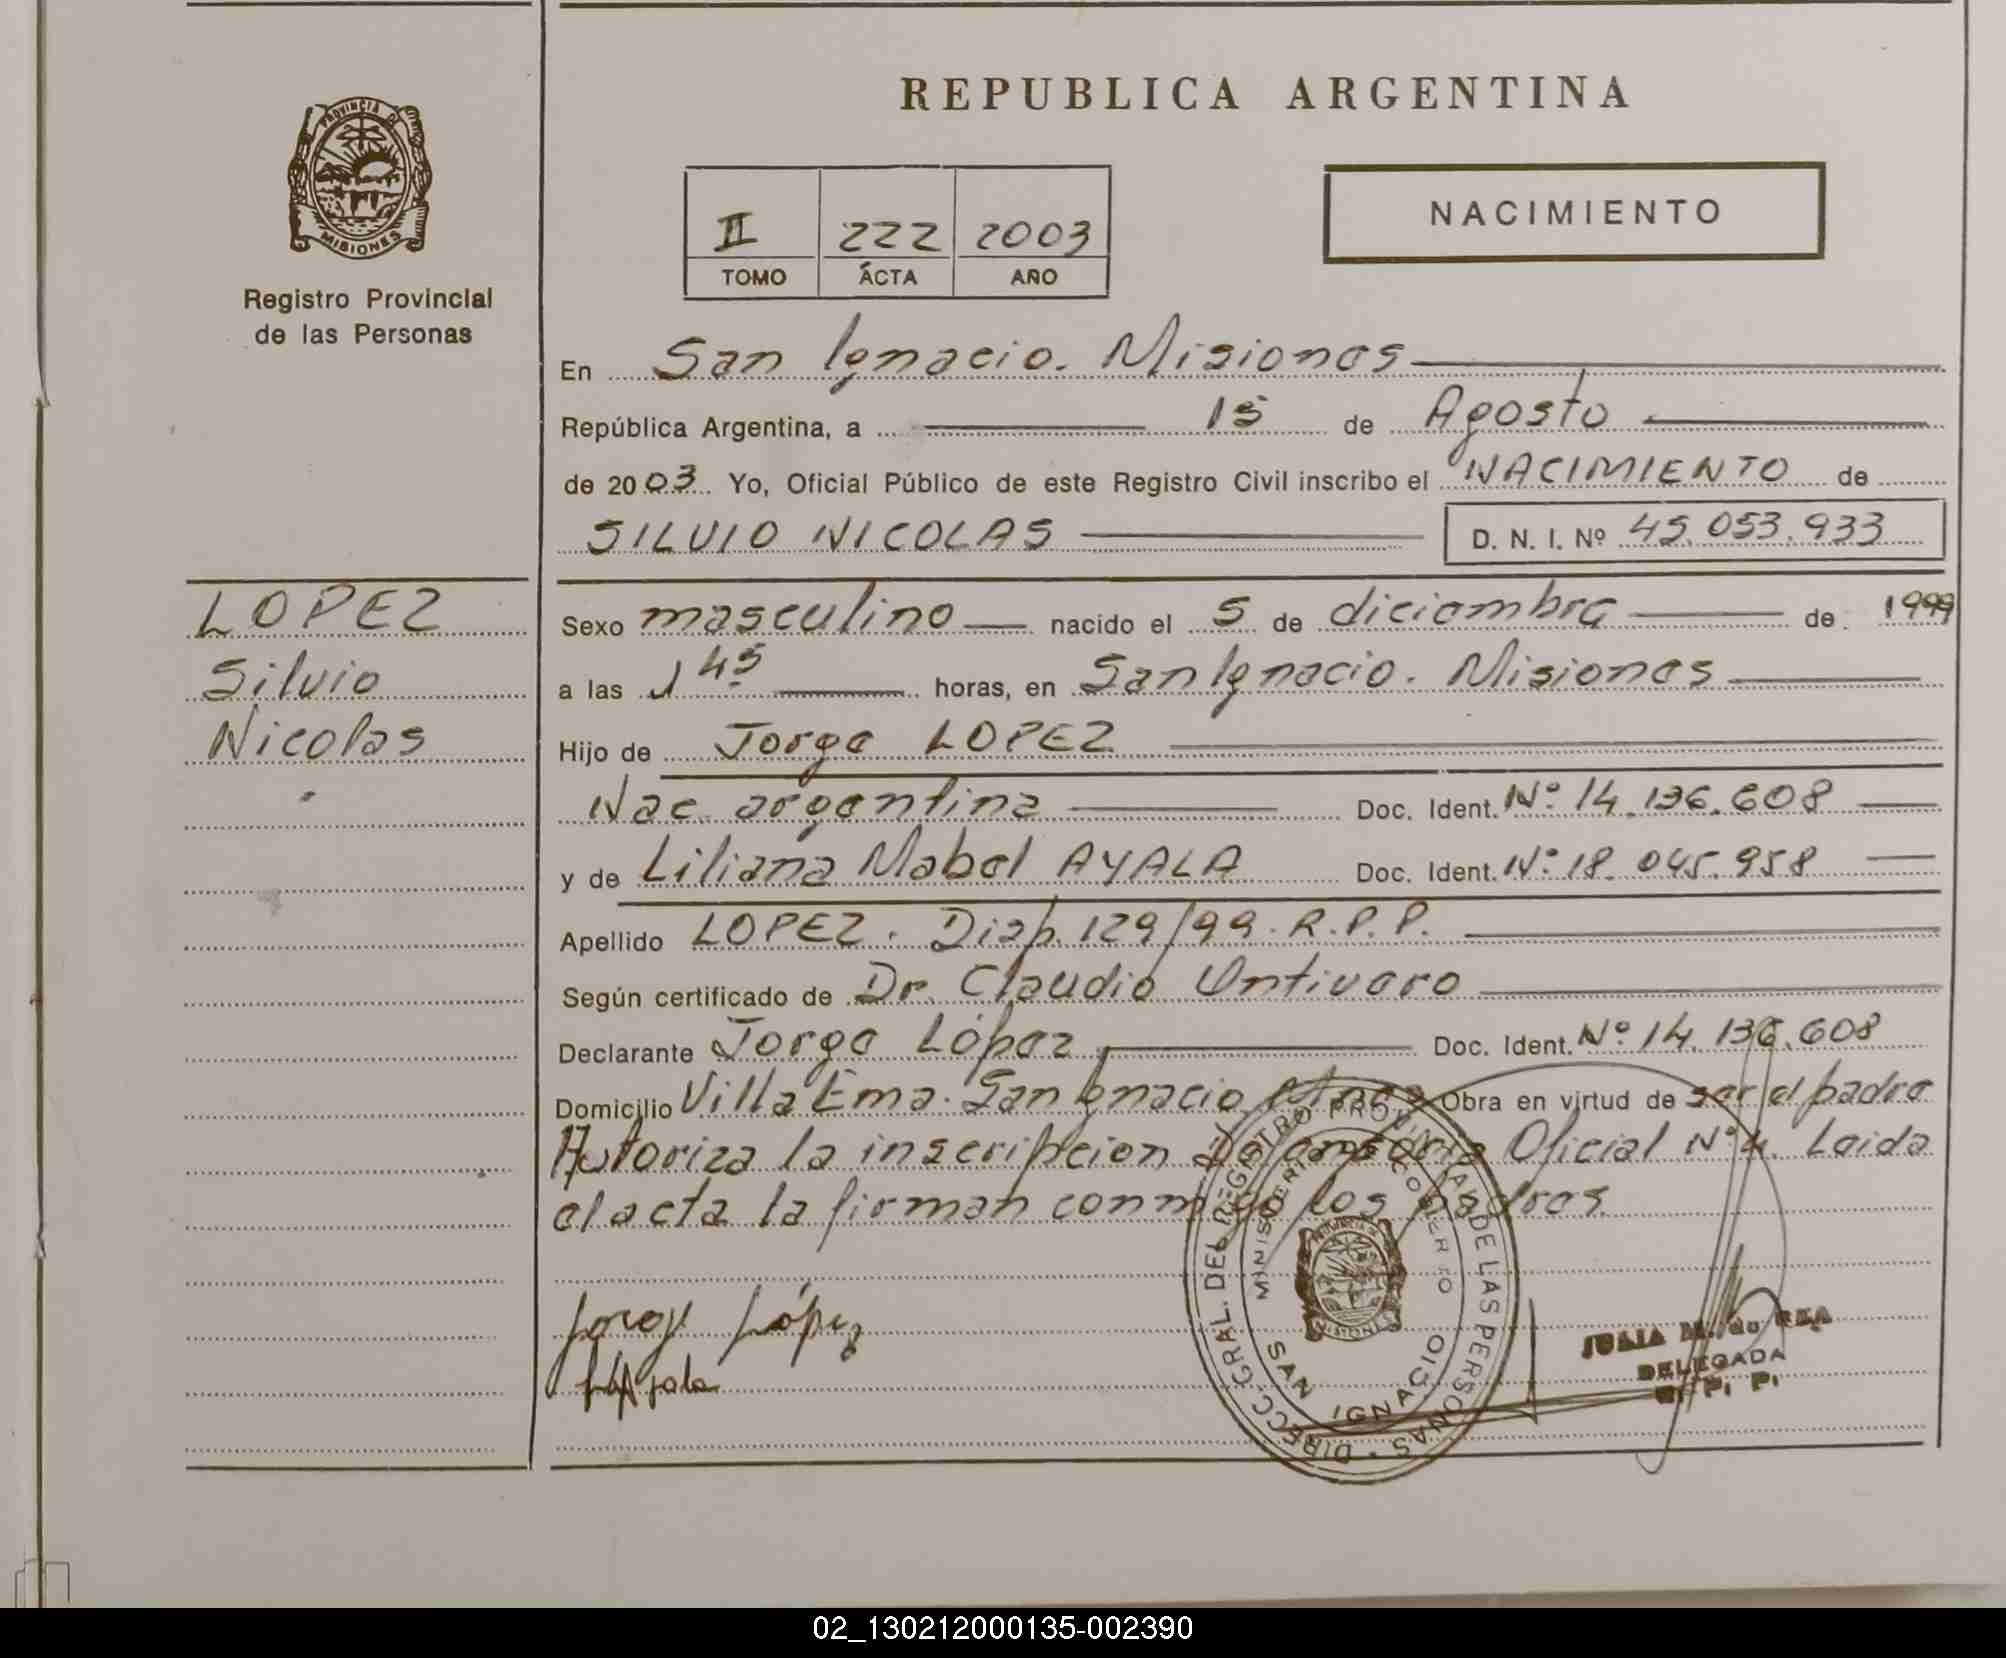 REPUBLICA ARGENTINA
PROVINCIA DE
MISIONES
Registro Provincial
de las Personas
II 222 2003
TOMO ACTA AÑO
NACIMIENTO
En San Ignacio. Misiones
República Argentina, a 15 de Agosto
de 2003 Yo, Oficial Público de este Registro Civil inscribo el NACIMIENTO de
SILVIO NICOLAS D. N. I. Nº 45.053.933
LOPEZ
Silvio
Nicolas
Sexo masculino nacido el 5 de diciembre de 1999
a las 1 45 horas, en San Ignacio. Misiones
Hijo de Jorge LOPEZ
Nac. argentina Doc. Ident. Nº 14.136.608
y de Liliana Mabel AYALA Doc. Ident. Nº 18.045.958
Apellido LOPEZ. Disp. 129/99. R.P.P.
Según certificado de Dr. Claudio Ontivero
Declarante Jorge López Doc. Ident. Nº 14.136.608
Domicilio Villa Ema. San Ignacio Mnes Obra en virtud de ser el padre
Autoriza la inscripcion Defensoria Oficial Nº 4. Leida
el acta la firman conmigo los padres.
Jorge López
LAyala
DIRECC. GRAL. DEL REGISTRO PROVINCIAL DE LAS PERSONAS
MINISTERIO DE GOBIERNO
SAN IGNACIO
JULIA M. de REA
DELEGADA
R. P. P.
02_130212000135-002390